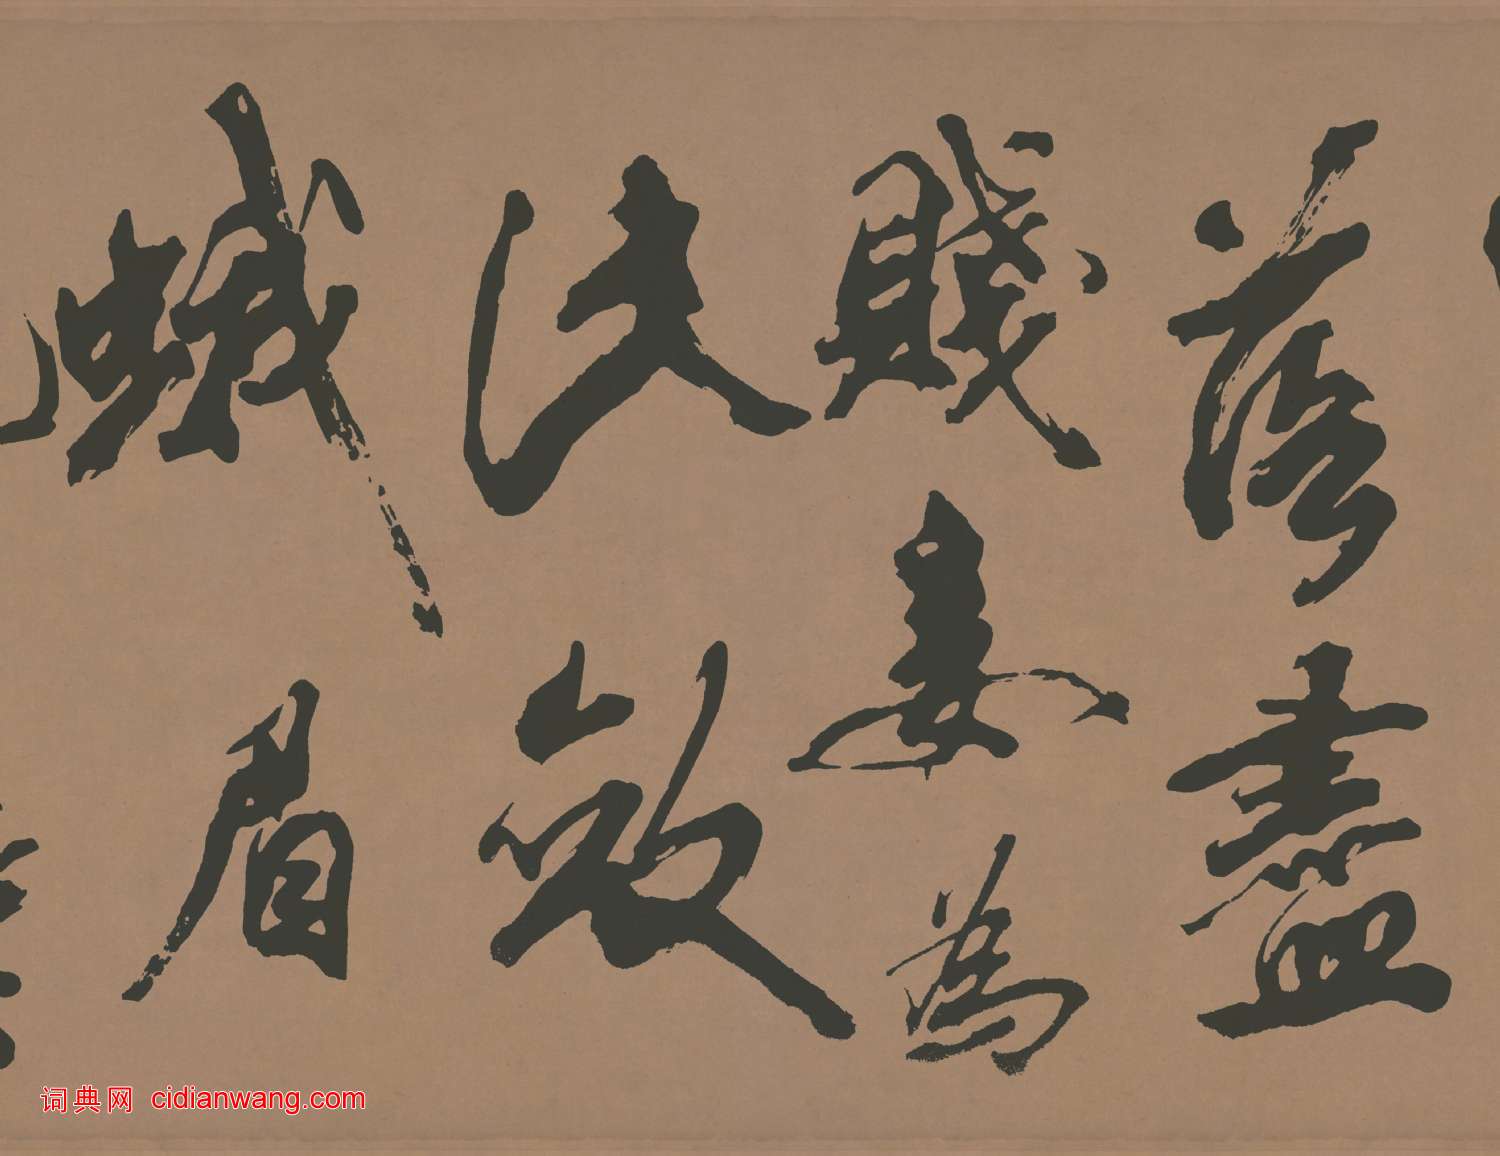 落盡
賤妾為
斂
蛾眉
词典网 cidianwang.com